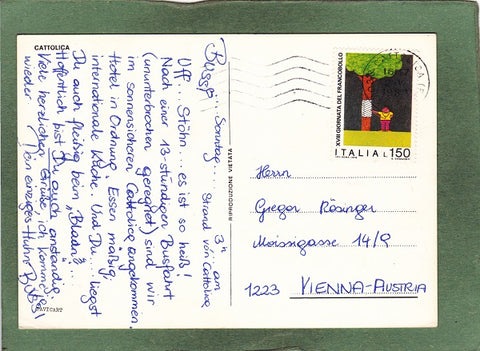 CATTOLICA
Bussi! Sonntag... 3h am
Strand von Cattolica
Uff... Stöhn... es ist so heiß!
Nach einer 13-stündigen Busfahrt
(ununterbrochen geregnet) sind wir
im sonnensicheren Cattolica angekommen.
Hotel in Ordnung. Essen mäßig,
internationale Küche. Und Du... liegst
Du auch fleißig beim „Bladn"?
Hoffentlich bist Du auch anständig.
Viele herzlichen Grüße, ich komme ja
wieder! Dein einziges Huhn
RIPRODUZIONE VIETATA
XVIII GIORNATA DEL FRANCOBOLLO
ITALIA L.150
Herrn
Gregor Rösinger
Moissigasse 14/9
1223 VIENNA-AUSTRIA